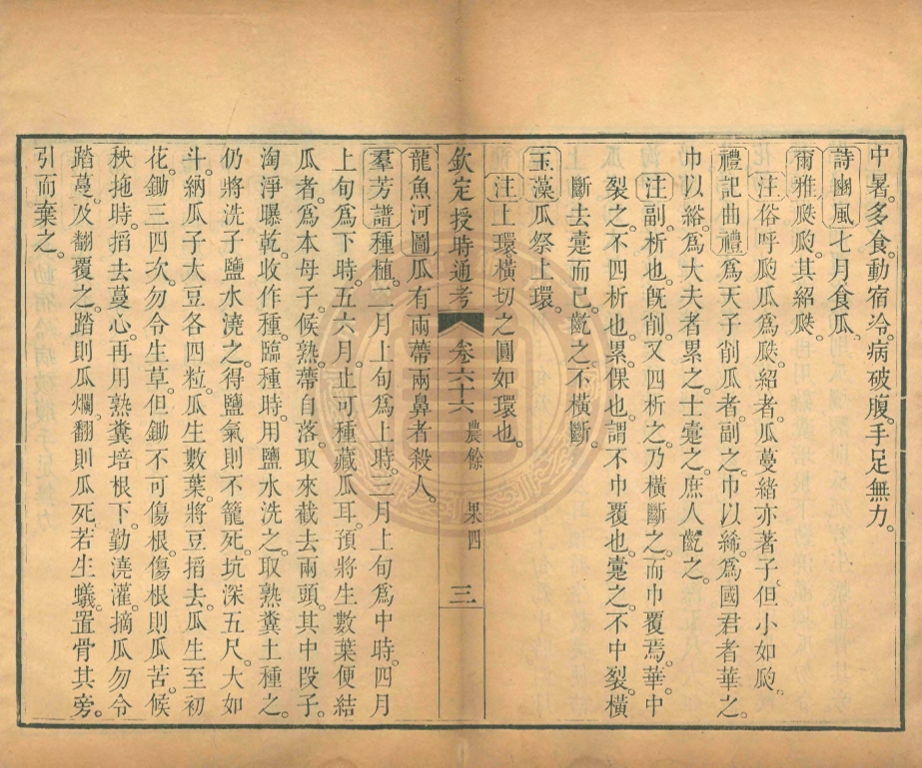 中暑。多食動宿冷病破腹。手足無力。
詩豳風七月食瓜。
爾雅瓞瓝其紹瓞。
注俗呼瓝瓜爲瓞。紹者瓜蔓緒亦著子。但小如瓝。
禮記曲禮爲天子削瓜者。副之。巾以絺。爲國君者華之。
巾以綌。爲大夫者累之。士疐之。庶人齕之。
注副。析也。旣削。又四析之。乃橫斷之。而巾覆焉。華中
裂之。不四析也。累倮也。謂不巾覆也。疐之。不中裂。橫
斷去疐而已。齕之。不橫斷。
玉藻瓜祭上環。
注上環。橫切之圓如環也。
欽定授時通考 卷六十六 農餘 果四 三
龍魚河圖瓜有兩蔕兩鼻者殺人。
羣芳譜種植。二月上旬爲上時。三月上旬爲中時。四月
上旬爲下時。五六月。止可種藏瓜耳。預將生數葉便結
瓜者。爲本母子。候熟蔕自落。取來截去兩頭。其中段子。
淘淨曝乾。收作種。臨種時。用鹽水洗之。取熟糞土種之。
仍將洗子鹽水澆之。得鹽氣則不籠死。坑深五尺。大如
斗。納瓜子大豆各四粒。瓜生數葉。將豆掐去。瓜生至初
花。鋤三四次。勿令生草。但鋤不可傷根。傷根則瓜苦。候
秧拖時。掐去蔓心。再用熟糞培根下。勤澆灌。摘瓜勿令
踏蔓。及翻覆之。踏則瓜爛。翻則瓜死。若生蟻。置骨其旁。
引而棄之。